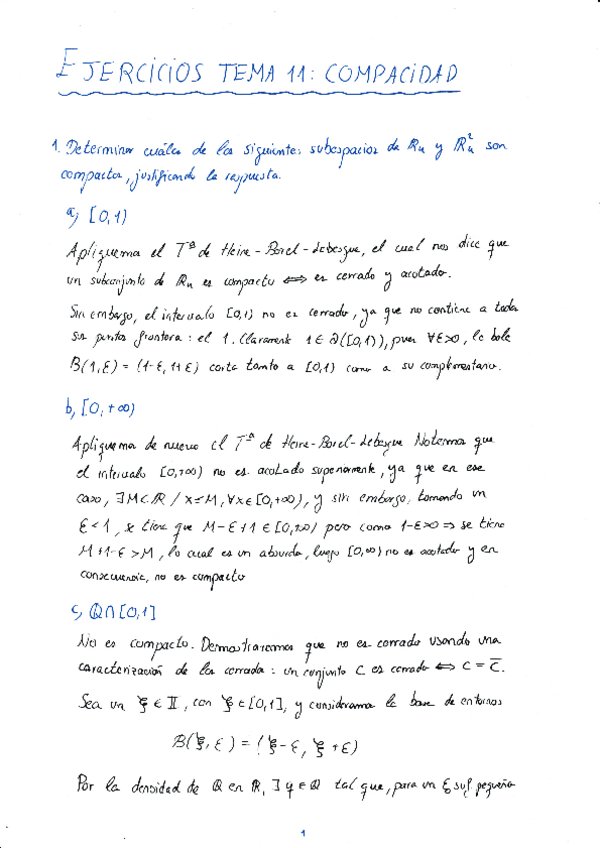 EJERCICIOS TEMA 11: COMPACIDAD
1. Determinar cuáles de los siguientes subespacios de ℝu y ℝ²u son
compactos, justificando la respuesta.
a) [0,1)
Apliquemos el Tª de Heine-Borel-Lebesgue, el cual nos dice que
un subconjunto de ℝu es compacto ⟺ es cerrado y acotado.
Sin embargo, el intervalo [0,1) no es cerrado, ya que no contiene a todos
sus puntos frontera: el 1. Claramente 1 ∈ ∂([0,1)), pues ∀ε>0, la bola
B(1,ε) = (1-ε, 1+ε) corta tanto a [0,1) como a su complementario.
b) [0,+∞)
Apliquemos de nuevo el Tª de Heine-Borel-Lebesgue. Notemos que
el intervalo [0,+∞) no es acotado superiormente, ya que en ese
caso, ∃M∈ℝ / x≤M, ∀x∈[0,+∞), y sin embargo, tomando un
ε<1, se tiene que M-ε+1 ∈ [0,+∞) pero como 1-ε>0 ⇒ se tiene
M+1-ε>M, lo cual es un absurdo, luego [0,∞) no es acotado y en
consecuencia, no es compacto
c) ℚ∩[0,1]
No es compacto. Demostraremos que no es cerrado usando una
caracterización de los cerrados: un conjunto C es cerrado ⟺ C = C̅.
Sea un ξ ∈ 𝕀, con ξ ∈ [0,1], y consideramos la base de entornos
B(ξ,ε) = (ξ-ε, ξ+ε)
Por la densidad de ℚ en ℝ, ∃ q ∈ ℚ tal que, para un ε suf. pequeño
1